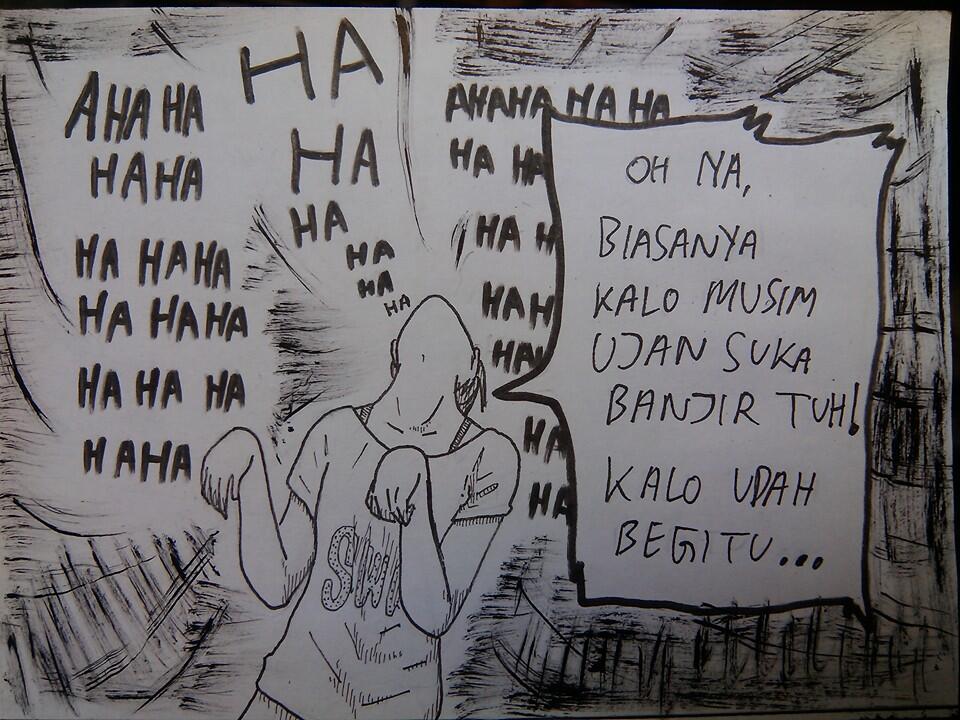 AHA HA
HAHA
HA HAHA
HA HAHA
HA HA HA
HAHA
HA
HA
HA
HA
HA
HA
AHAHA HA HA
HA HA
HA H
HAH
HAH
HA
HA
OH YA,
BIASANYA
KALO MUSIM
UJAN SUKA
BANJIR TUH!
KALO UDAH
BEGITU...